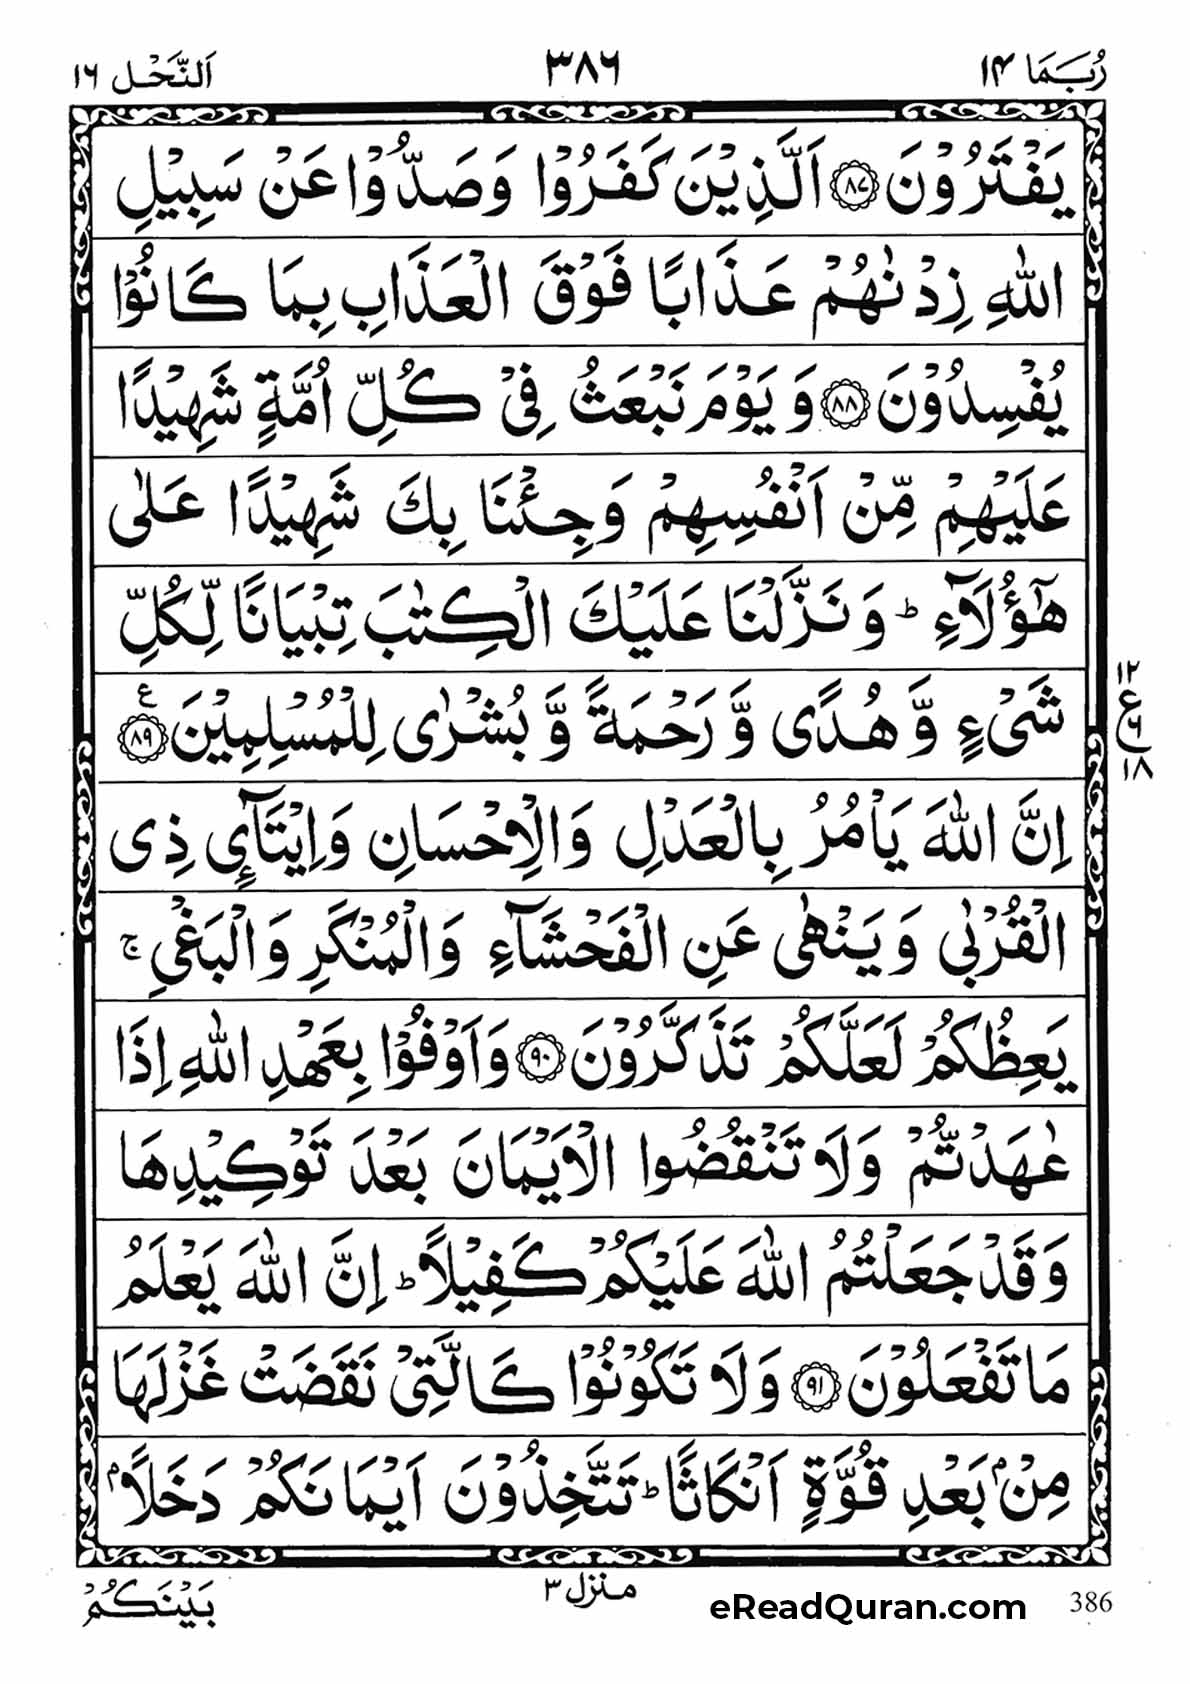 رُبَمَا ١٤ ٣٨٦ اَلنَّحْل ١٦
يَفْتَرُوْنَ ﴿٨٧﴾ اَلَّذِيْنَ كَفَرُوْا وَصَدُّوْا عَنْ سَبِيْلِ
اللّٰهِ زِدْنٰهُمْ عَذَابًا فَوْقَ الْعَذَابِ بِمَا كَانُوْا
يُفْسِدُوْنَ ﴿٨٨﴾ وَيَوْمَ نَبْعَثُ فِيْ كُلِّ اُمَّةٍ شَهِيْدًا
عَلَيْهِمْ مِّنْ اَنْفُسِهِمْ وَجِئْنَا بِكَ شَهِيْدًا عَلٰى
هٰٓؤُلَآءِ ؕ وَنَزَّلْنَا عَلَيْكَ الْكِتٰبَ تِبْيَانًا لِّكُلِّ
شَيْءٍ وَّهُدًى وَّرَحْمَةً وَّبُشْرٰى لِلْمُسْلِمِيْنَ ﴿٨٩﴾ ع
١٢
ع
٦
١٨
اِنَّ اللّٰهَ يَاْمُرُ بِالْعَدْلِ وَالْاِحْسَانِ وَاِيْتَآئِ ذِي
الْقُرْبٰى وَيَنْهٰى عَنِ الْفَحْشَآءِ وَالْمُنْكَرِ وَالْبَغْيِ ۚ
يَعِظُكُمْ لَعَلَّكُمْ تَذَكَّرُوْنَ ﴿٩٠﴾ وَاَوْفُوْا بِعَهْدِ اللّٰهِ اِذَا
عٰهَدْتُّمْ وَلَا تَنْقُضُوا الْاَيْمَانَ بَعْدَ تَوْكِيْدِهَا
وَقَدْ جَعَلْتُمُ اللّٰهَ عَلَيْكُمْ كَفِيْلًا ؕ اِنَّ اللّٰهَ يَعْلَمُ
مَا تَفْعَلُوْنَ ﴿٩١﴾ وَلَا تَكُوْنُوْا كَالَّتِيْ نَقَضَتْ غَزْلَهَا
مِنْۢ بَعْدِ قُوَّةٍ اَنْكَاثًا ؕ تَتَّخِذُوْنَ اَيْمَانَكُمْ دَخَلًاۢ
بَيْنَكُمْ منزل ٣ eReadQuran.com 386